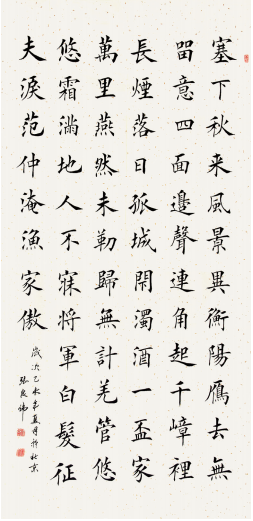 塞下秋来風景異衡陽鴈去無
留意四面邊聲連角起千嶂裡
長煙落日孤城閉濁酒一盃家
萬里燕然未勒歸無計羌管悠
悠霜滿地人不寐將軍白髮征
夫淚范仲淹漁家傲
歲次乙未年夏月於北京